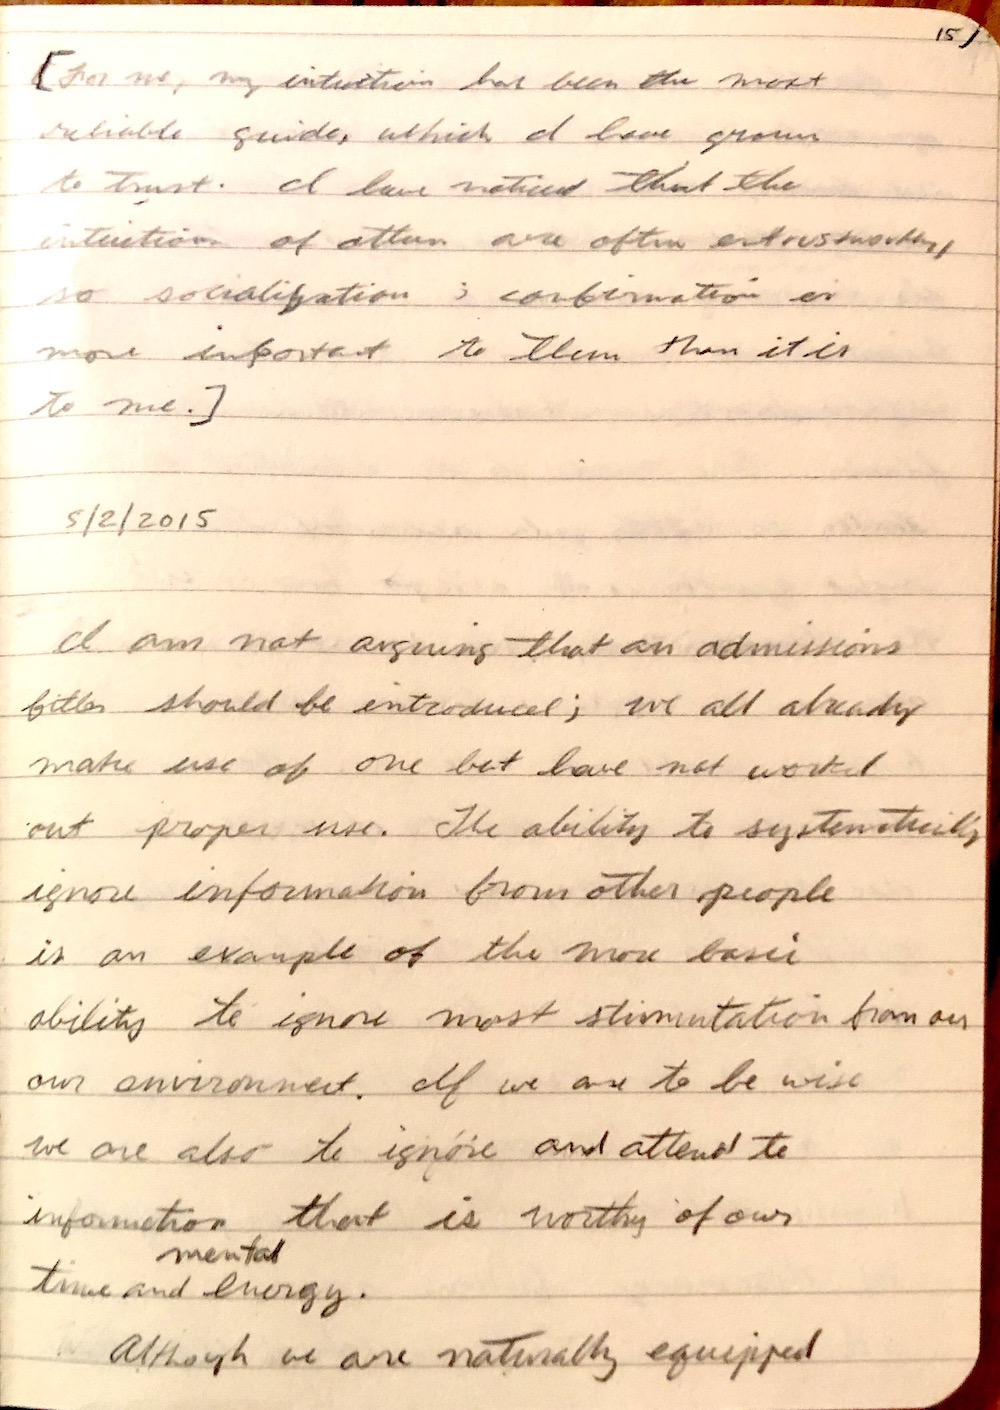 15)
[For me, my intuition has been the most
reliable guide, which I have grown
to trust. I have noticed that the
intuitions of others are often
so socialization & confirmation is
more important to them than it is
to me.]
5/2/2015
I am not arguing that an admissions
filter should be introduced; we all already
make use of one but have not worked
out proper use. The ability to systematically
ignore information from other people
is an example of the more basic
ability to ignore most stimulation from our
our environment. If we are to be wise
we are also to ignore and attend to
information that is worthy of our
mental
time and energy.
Although we are naturally equipped